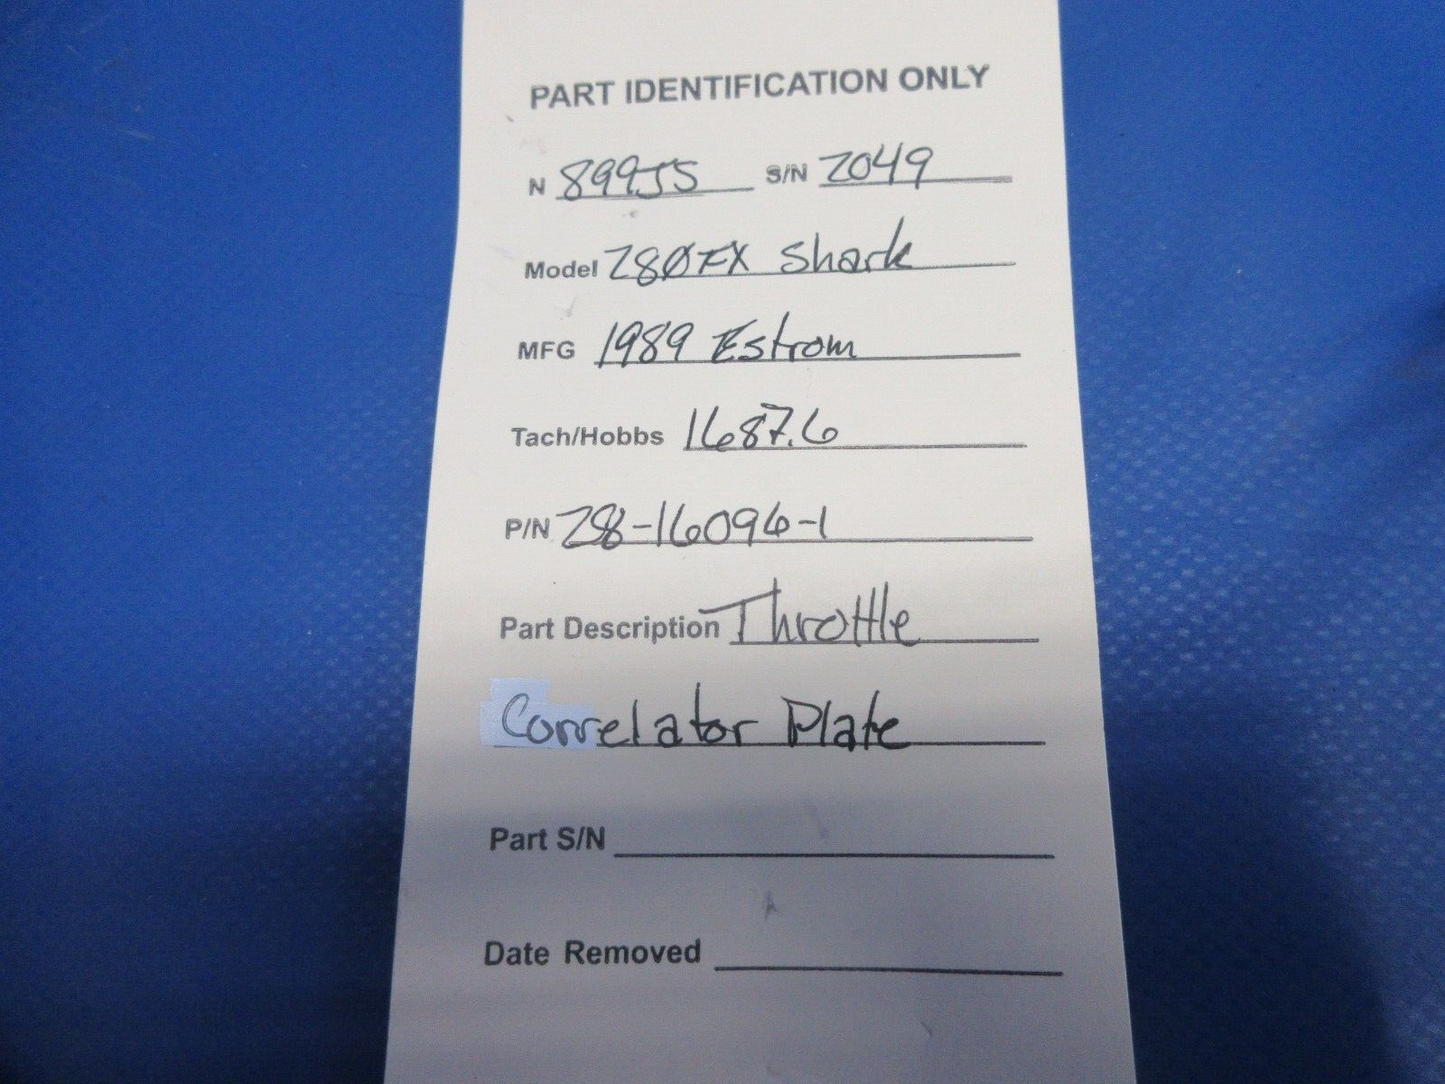 PART IDENTIFICATION ONLY
N 899JS S/N 2049
Model 280FX Shark
MFG 1989 Estrom
Tach/Hobbs 1687.6
P/N 28-16096-1
Part Description Throttle
Correlator Plate
Part S/N
Date Removed